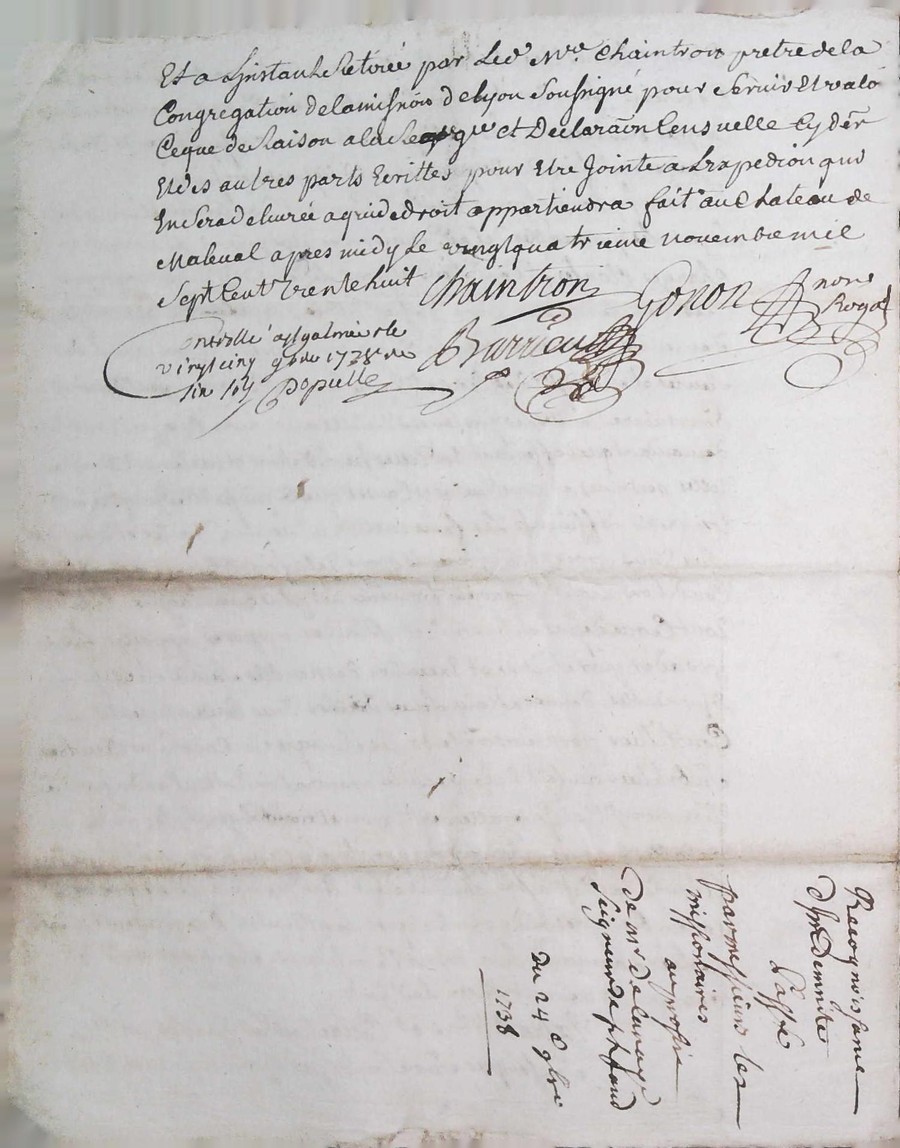 Et a Linstant Retiré par Led Mre. Chaintron pretre de la
Congregation de la mission de Lyon Soussigné pour Servir Et valo
Ceque de Raison a la et Declaraõn Censuelle Cy derr
Et des autres parts Ecrittes pour Etre Jointe a Lexpedion qui
En Sera delivrée a qui de droit appartiendra fait au Chateau de
Maleval apres midy Le vingt quatrieme novembre mil
Sept Cent Trente huit Chaintron Gonon
notre
Royal
Controllé a St galmier le
vingt cinq 9bre 1738 
six s Populle
Barrieu
Recognoissance
d'indemnite
par messieurs les
missionaires
au profit
de mr de
Seigneur de
Du 24e 9bre
1738